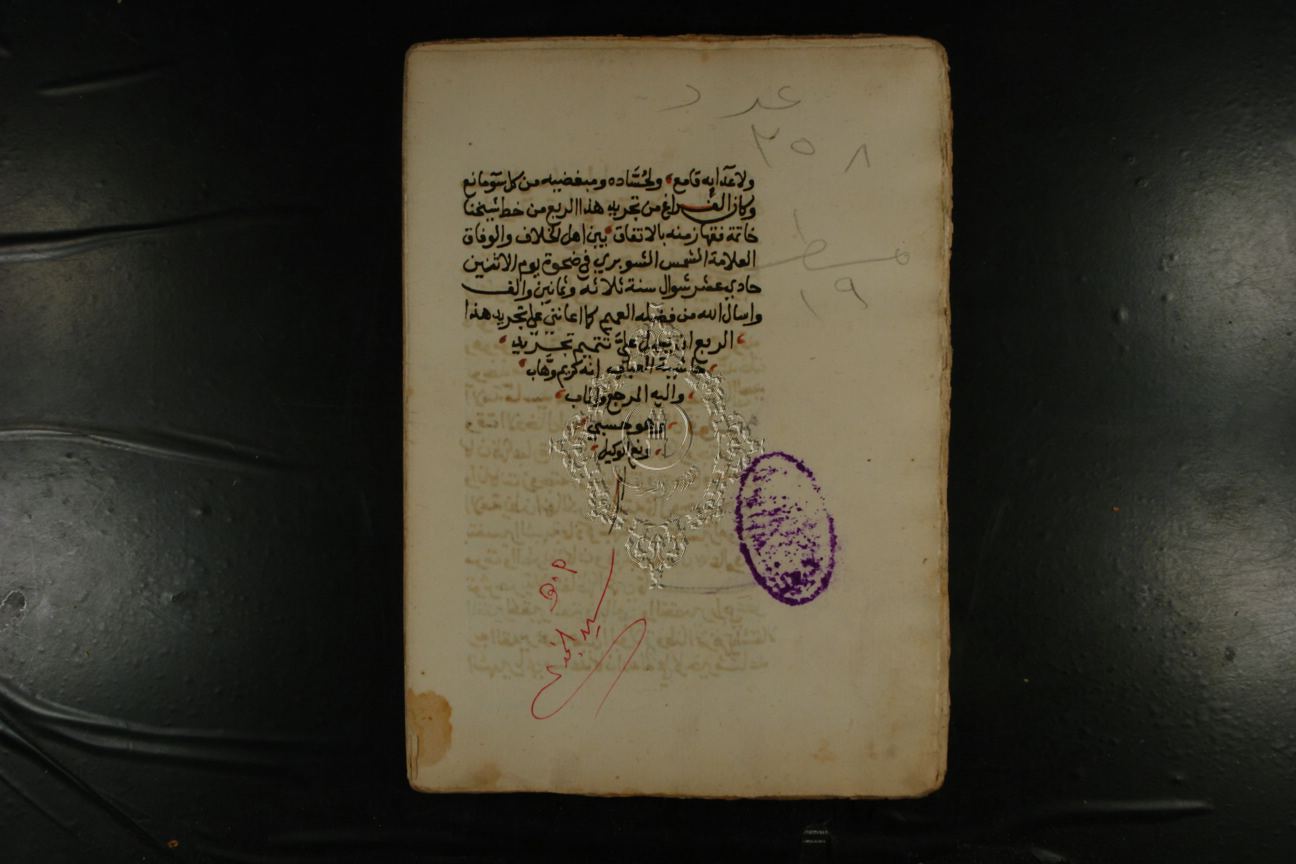 عدد
٢٥٨
ولاعدايه قامع ولحُسَّاده ومبغضيه من كل سوّ مانع
وكان الفراغ من تجريد هذا الربع من خط شيخنا
خاتمة فقها زمنه بالاتفاق بين اهل الخلاف والوفاق
العلامة الشمس الشوبري في ضحوة يوم الاثنين
حادي عشر شوال سنة ثلاثه وثمانين والف
واسال الله من فضله العميم كما اعانني على تجريد هذا
الربع ان يعين على تتميم تجريد
حاشية العباب انه كريم وهاب
واليه المرجع والماب
وهو حسبي
ونعم الوكيل
١٩
سيد